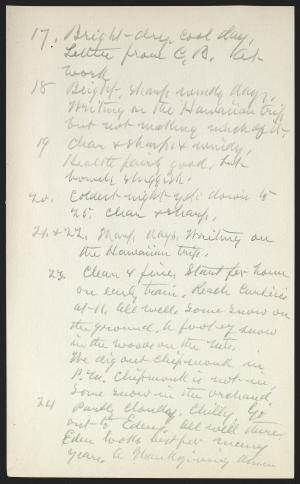 17. Bright - dry, cool day,
Letter from C. B. At
work
18 Bright, sharp windy days,
Writing on the Hawaiian trip
but not making much of it.
19 Clear & sharp & windy,
Health fairly good, but
bowels sluggish.
20. Coldest night yet: down to
25. Clear & sharp.
21 & 22. Sharp days. Writing on
the Hawaiian trip.
23 Clear & fine. Start for home
on early train. Reach Curtis's
at 11. All well. Some snow on
the ground. A foot of snow
in the woods on the hills.
We dig out chipmunk in
P.M. Chipmunk is not in,
Some snow in the orchard.
24 Partly cloudy. Chilly. Go
out to Eden's. All well there,
Eden looks best for many
years. A Thanksgiving dinner